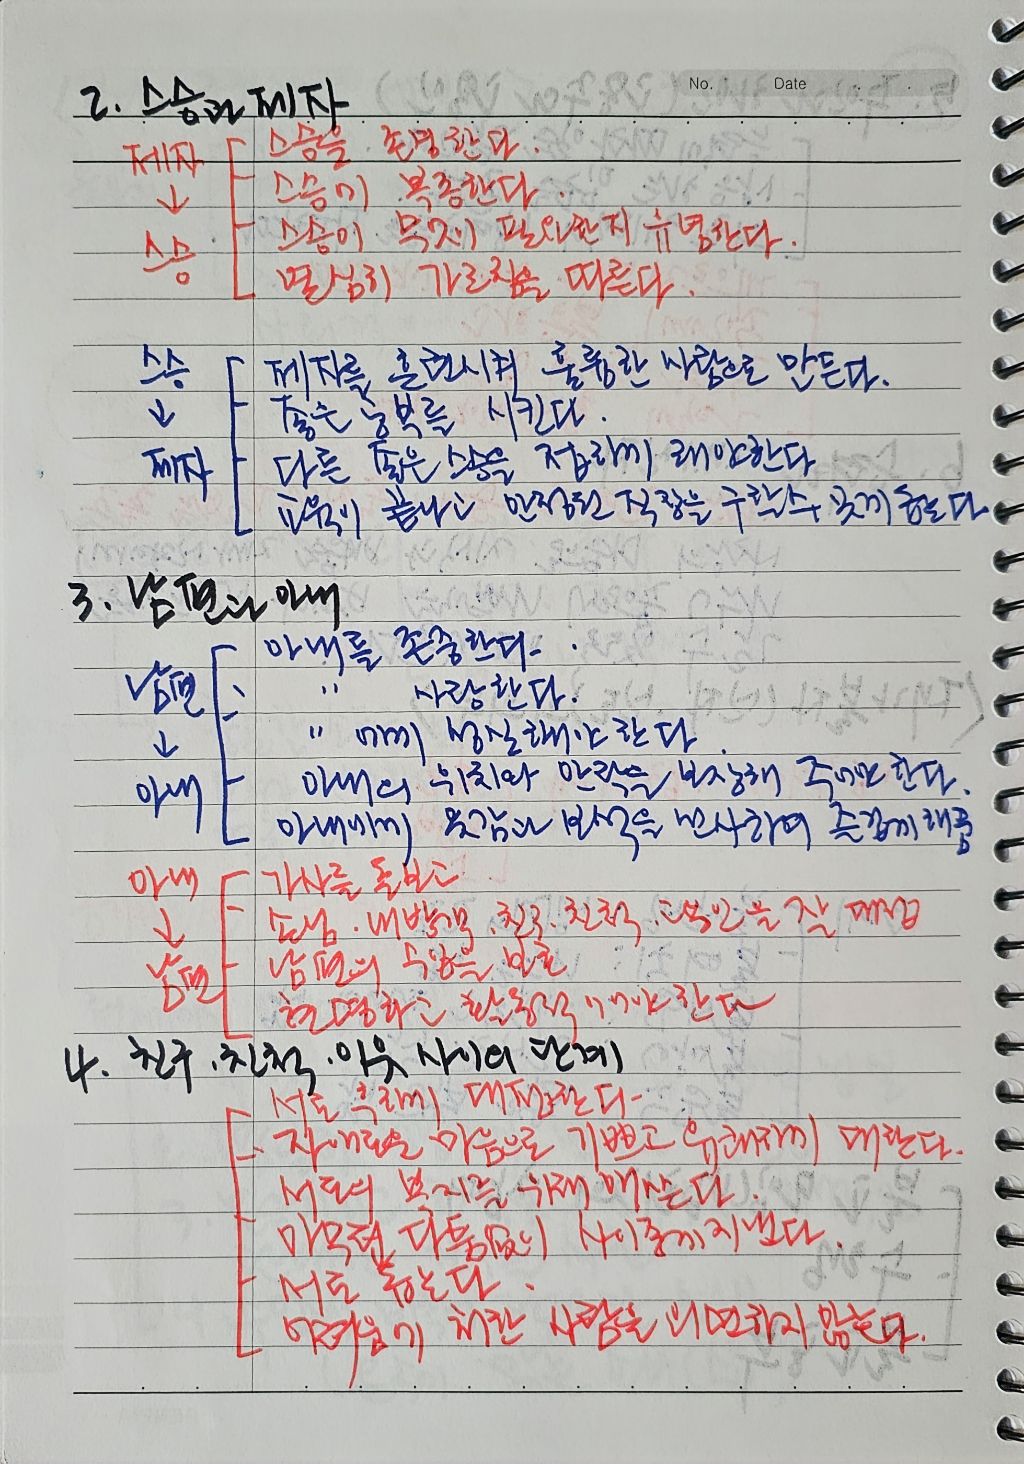 No. Date
2. 스승과 제자
제자 스승을 존경한다.
↓ 스승에게 복종한다.
스승 스승이 무엇이 필요한지 유념한다.
열심히 가르침을 따른다.
스승 제자를 훈련시켜 훌륭한 사람으로 만든다.
↓ 좋은 공부를 시킨다.
제자 다른 좋은 스승을 해야한다
교육이 끝나고 안정된 직장을 구할수 있게 돕는다
3. 남편과 아내
아내를 존중한다.
남편 " 사랑한다.
↓ " 에게 성실해야 한다.
아내 아내의 위치와 안락을 보장해 주어야 한다.
아내에게 옷감과 보석을 하여 즐겁게해줌
아내 가사를 돌보고
↓ 손님. 내방객. 친구. 친척. 고용인을 잘 대접
남편 남편의 수입을 보호
현명하고 활동적이어야 한다
4. 친구. 친척. 이웃 사이의 관계
서로 대접한다
마음으로 기쁘고 유쾌하게 대한다.
서로의 복지를 위해 애쓴다.
다툼없이 사이좋게지낸다.
서로 돕는다.
어려움에 처한 사람을 외면하지 않는다.